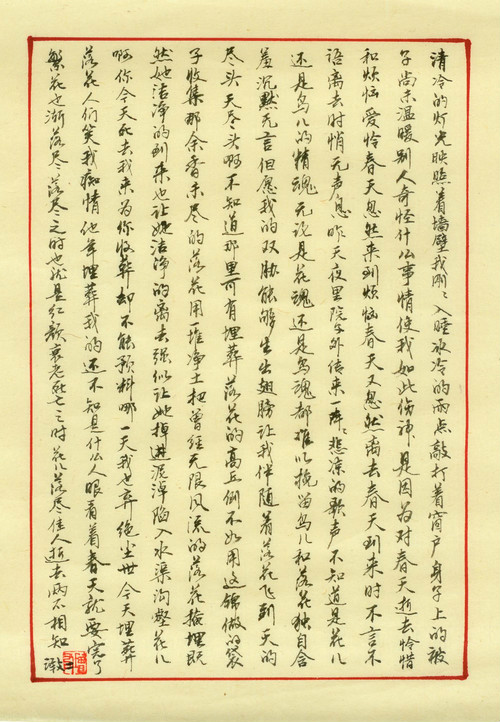 清冷的灯光映照着墙壁我刚刚入睡冰冷的雨点敲打着窗户身子上的被
子尚未温暖别人奇怪什么事情使我如此伤神是因为对春天逝去怜惜
和烦恼爱怜春天忽然来到烦恼春天又忽然离去春天到来时不言不
语离去时悄无声息昨天夜里院子外传来阵阵悲凉的歌声不知道是花儿
还是鸟儿的精魂无论是花魂还是鸟魂都难以挽留鸟儿和落花独自含
羞沉默无言但愿我的双肋能够生出翅膀让我伴随着落花飞到天的
尽头天尽头啊不知道那里可有埋葬落花的高丘倒不如用这锦做的袋
子收集那余香未尽的落花用一堆净土把曾经无限风流的落花掩埋既
然她洁净的到来也让她洁净的离去强似让她掉进泥淖陷入水渠沟壑花儿
啊你今天死去我来为你收葬却不能预料哪一天我也弃绝尘世今天埋葬
落花人们笑我痴情他年埋葬我的还不知是什么人眼看着春天就要完了
繁花也渐落尽落尽之时也就是红颜衰老死亡之时花儿落尽佳人逝去两不相知